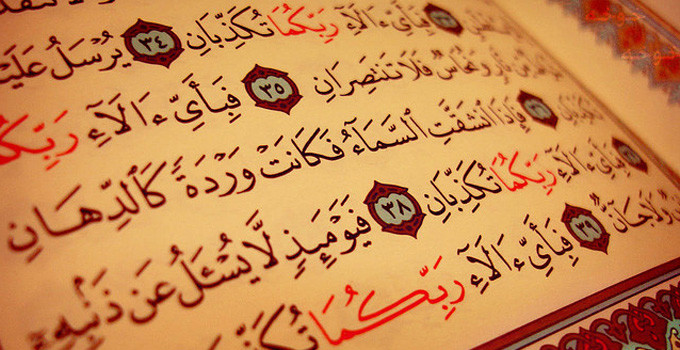 فَبِأَيِّ ءَالَآءِ رَبِّكُمَا تُكَذِّبَانِ ٣٤ يُرْسَلُ عَلَيْ
مِّن نَّارٍ وَنُحَاسٌ فَلَا تَنتَصِرَانِ ٣٥ فَبِأَيِّ ءَالَآءِ رَبِّكُ
تُكَذِّبَانِ ٣٦ فَإِذَا ٱنشَقَّتِ ٱلسَّمَآءُ فَكَانَتْ وَرْدَةً كَٱلدِّهَانِ
٣٧ فَبِأَيِّ ءَالَآءِ رَبِّكُمَا تُكَذِّبَانِ ٣٨ فَيَوْمَئِذٍ لَّا يُسْـَٔلُ عَن ذَنۢبِهِۦٓ
وَلَا جَآنٌّ ٣٩ فَبِأَيِّ ءَالَآءِ رَبِّكُمَا تُكَذِّ